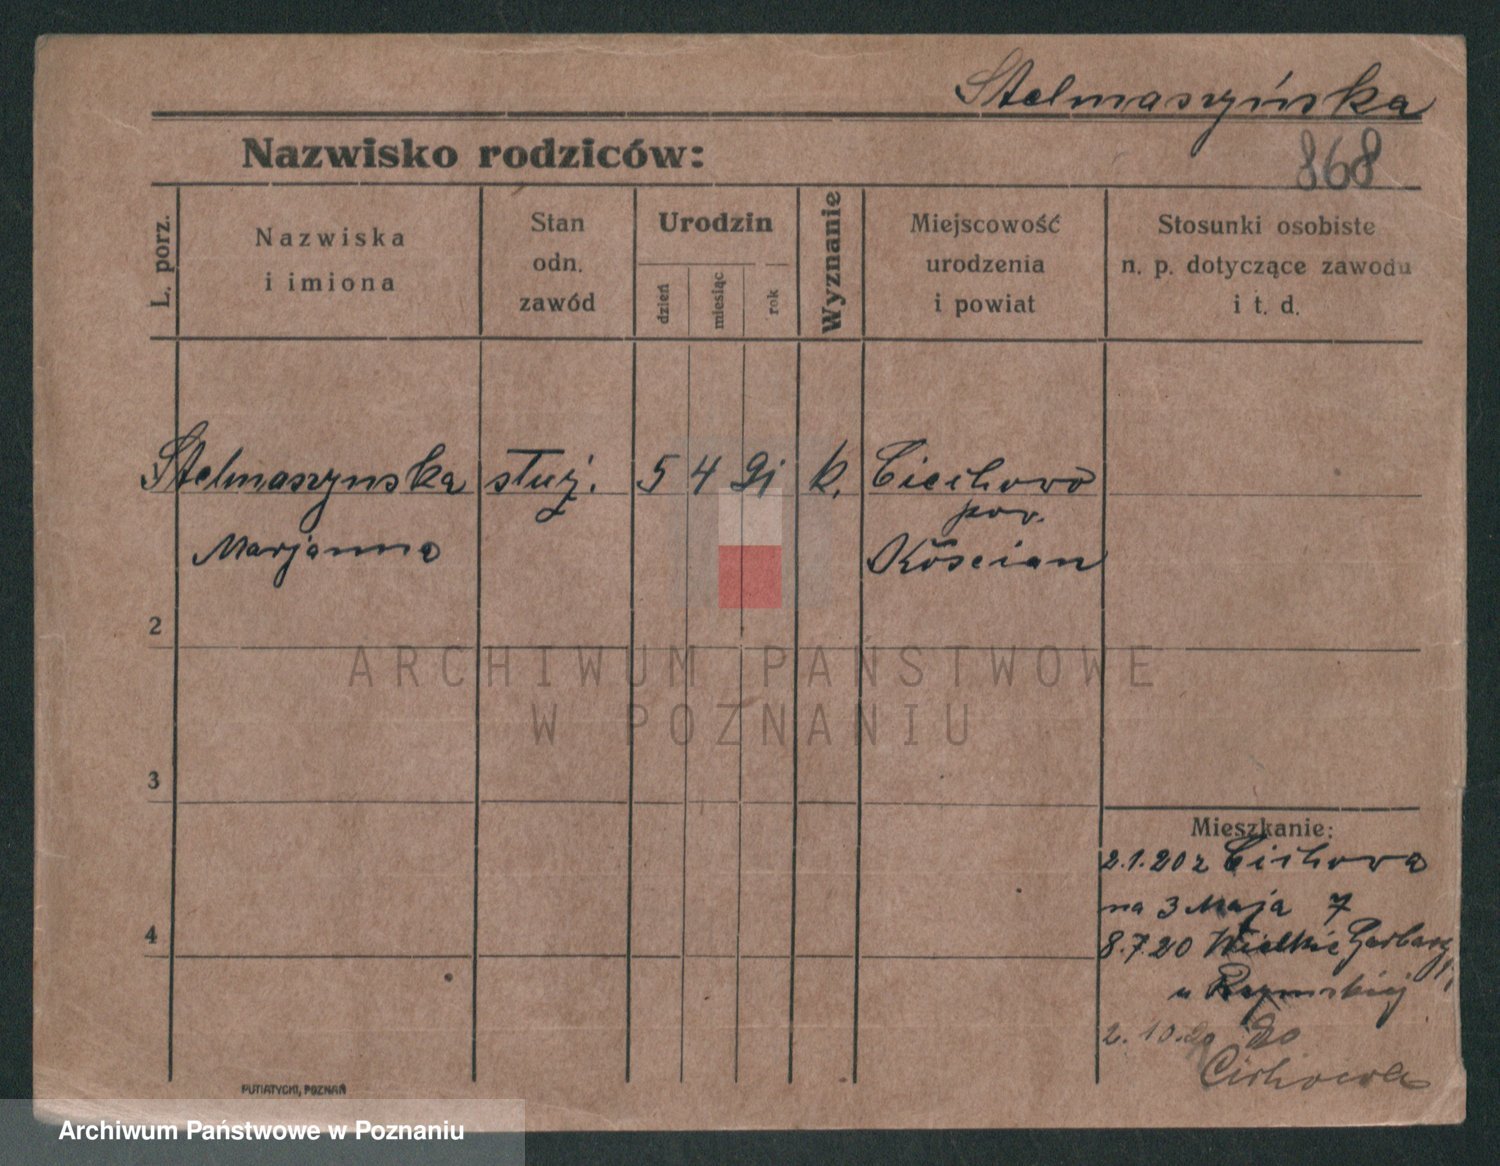 Stelmaszyńska
868
Nazwisko rodziców:
L. porz.
Nazwiska
i imiona
Stan
odn.
zawód
Urodzin
dzień
miesiąc
rok
Wyznanie
Miejscowość
urodzenia
i powiat
Stosunki osobiste
n. p. dotyczące zawodu
i t. d.
Stelmaszynska służ. 5 4 91 k. Ciechowo
pow.
Marjanna Kościan
2
ARCHIWUM PAŃSTWOWE
W POZNANIU
3
Mieszkanie:
2.1.20 z Cichowa
na 3 Maja 7
4
8.7.20 Wielkie Garbary
u
2.10.20 do
Cichowa
PUTIATYCKI, POZNAŃ
Archiwum Państwowe w Poznaniu